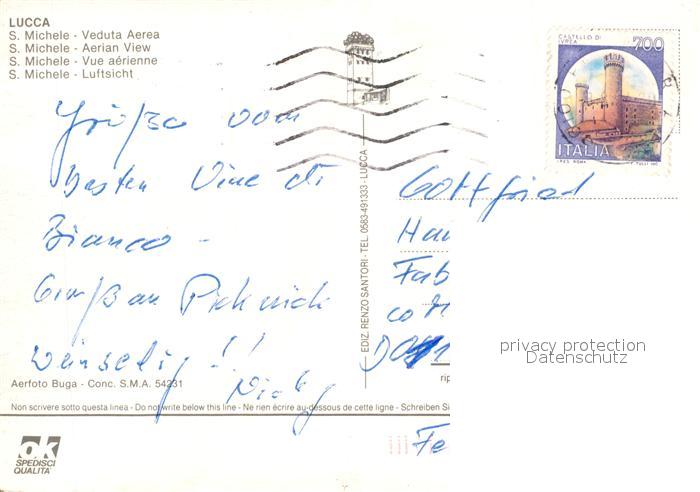 LUCCA
S. Michele - Veduta Aerea
S. Michele - Aerian View
S. Michele - Vue aérienne
S. Michele - Luftsicht
CASTELLO DI
IVREA
700
ITALIA
I.P.S. ROMA
Grüße vom
besten Vine di
Bianco -
Gruß an Picknick
weinselig !!
Nicky
EDIZ. RENZO SANTORI - TEL. 0583-491333 - LUCCA
Gottfried
Hau
Fab
privacy protection
Datenschutz
Aerfoto Buga - Conc. S.M.A. 54231
rip
Non scrivere sotto questa linea - Do not write below this line - Ne rien écrire au-dessous de cette ligne - Schreiben Si
Fe
ok
SPEDISCI
QUALITA'